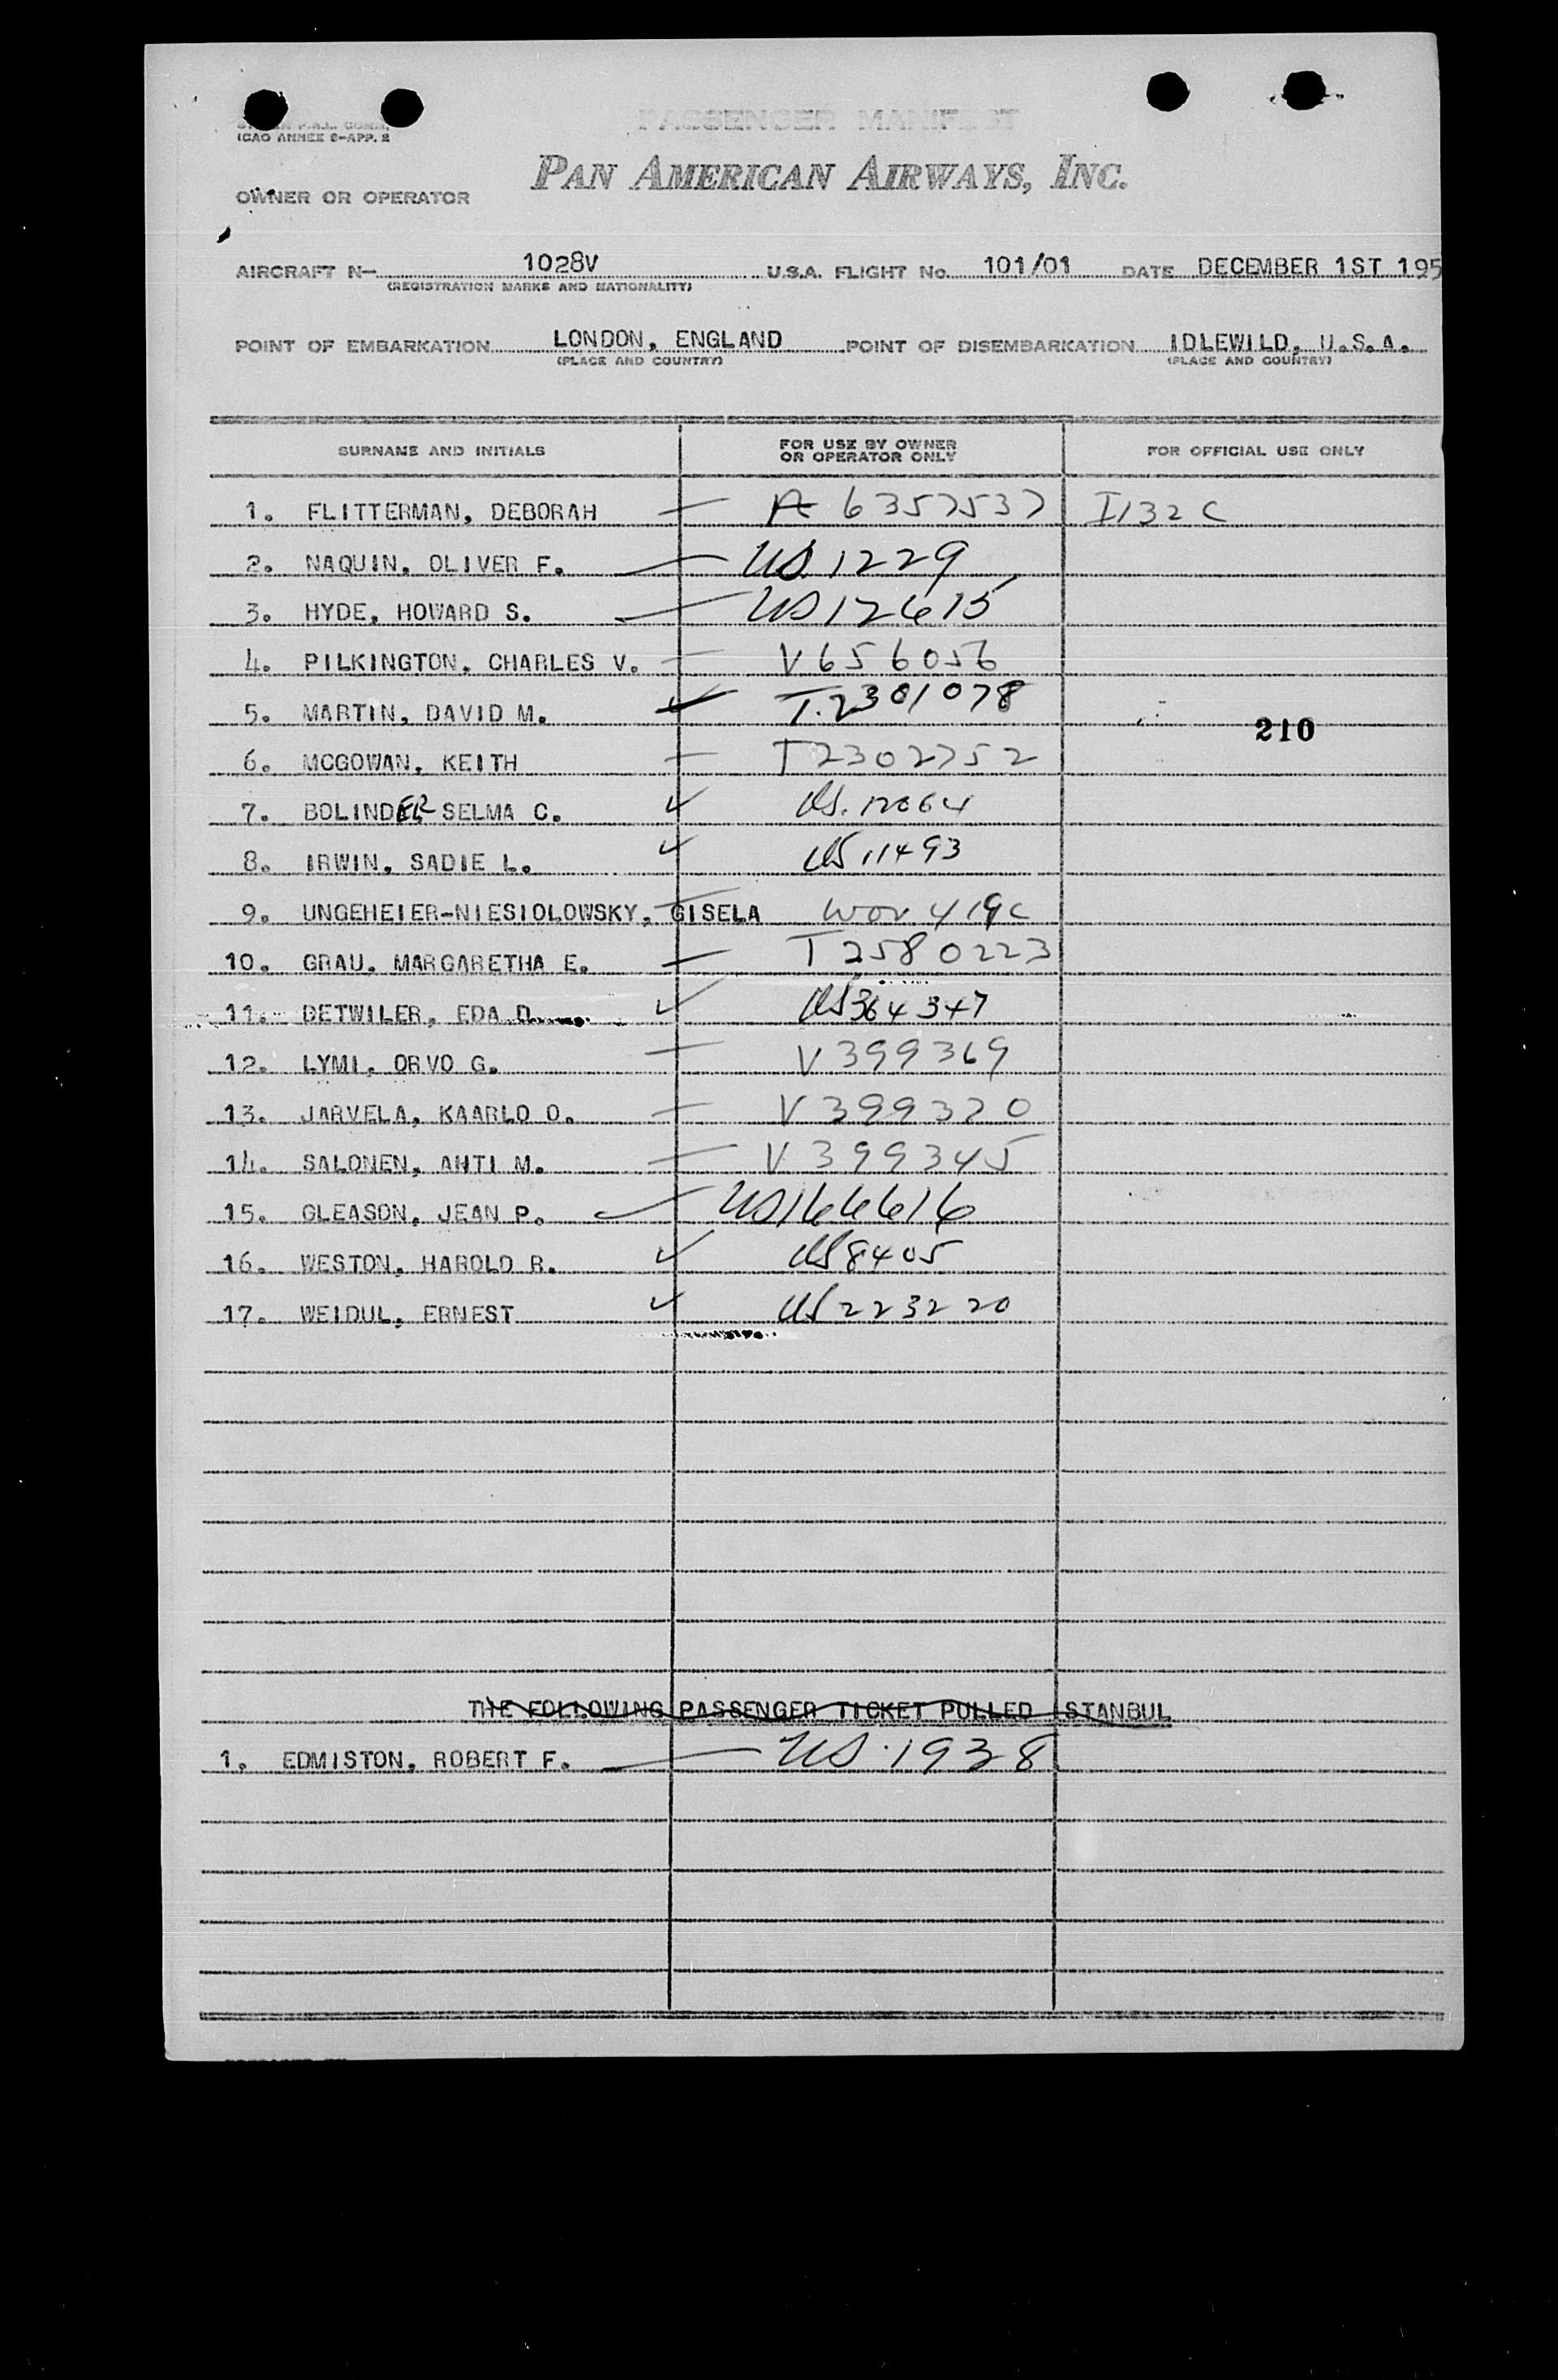 ICAO ANNEX 9-APP. 2
PASSENGER MANIFEST
PAN AMERICAN AIRWAYS, INC.
OWNER OR OPERATOR
AIRCRAFT N- 1028V U.S.A. FLIGHT No. 101/01 DATE DECEMBER 1ST 195
(REGISTRATION MARKS AND NATIONALITY)
POINT OF EMBARKATION LONDON, ENGLAND POINT OF DISEMBARKATION IDLEWILD, U.S.A.
(PLACE AND COUNTRY) (PLACE AND COUNTRY)
SURNAME AND INITIALS FOR USE BY OWNER OR OPERATOR ONLY FOR OFFICIAL USE ONLY
1. FLITTERMAN, DEBORAH — A 6357537 I132C
2. NAQUIN, OLIVER F. — US 1229
3. HYDE, HOWARD S. — US 12615
4. PILKINGTON, CHARLES V. — V656056
5. MARTIN, DAVID M. ✓ T.2301078
210
6. MCGOWAN, KEITH — T2302752
7. BOLINDER SELMA C. ✓ US. 12064
8. IRWIN, SADIE L. ✓ US 11493
9. UNGEHEIER-NIESIOLOWSKY, GISELA 419c
10. GRAU, MARGARETHA E. — T2580223
11. DETWILER, EDA D. ✓ US364347
12. LYMI, ORVO G. — V399369
13. JARVELA, KAARLO O. — V399320
14. SALONEN, AHTI M. — V399345
15. GLEASON, JEAN P. — US166616
16. WESTON, HAROLD R. ✓ US8405
17. WEIDUL, ERNEST ✓ US223220
THE FOLLOWING PASSENGER TICKET PULLED ISTANBUL
1. EDMISTON, ROBERT F. — US.1938